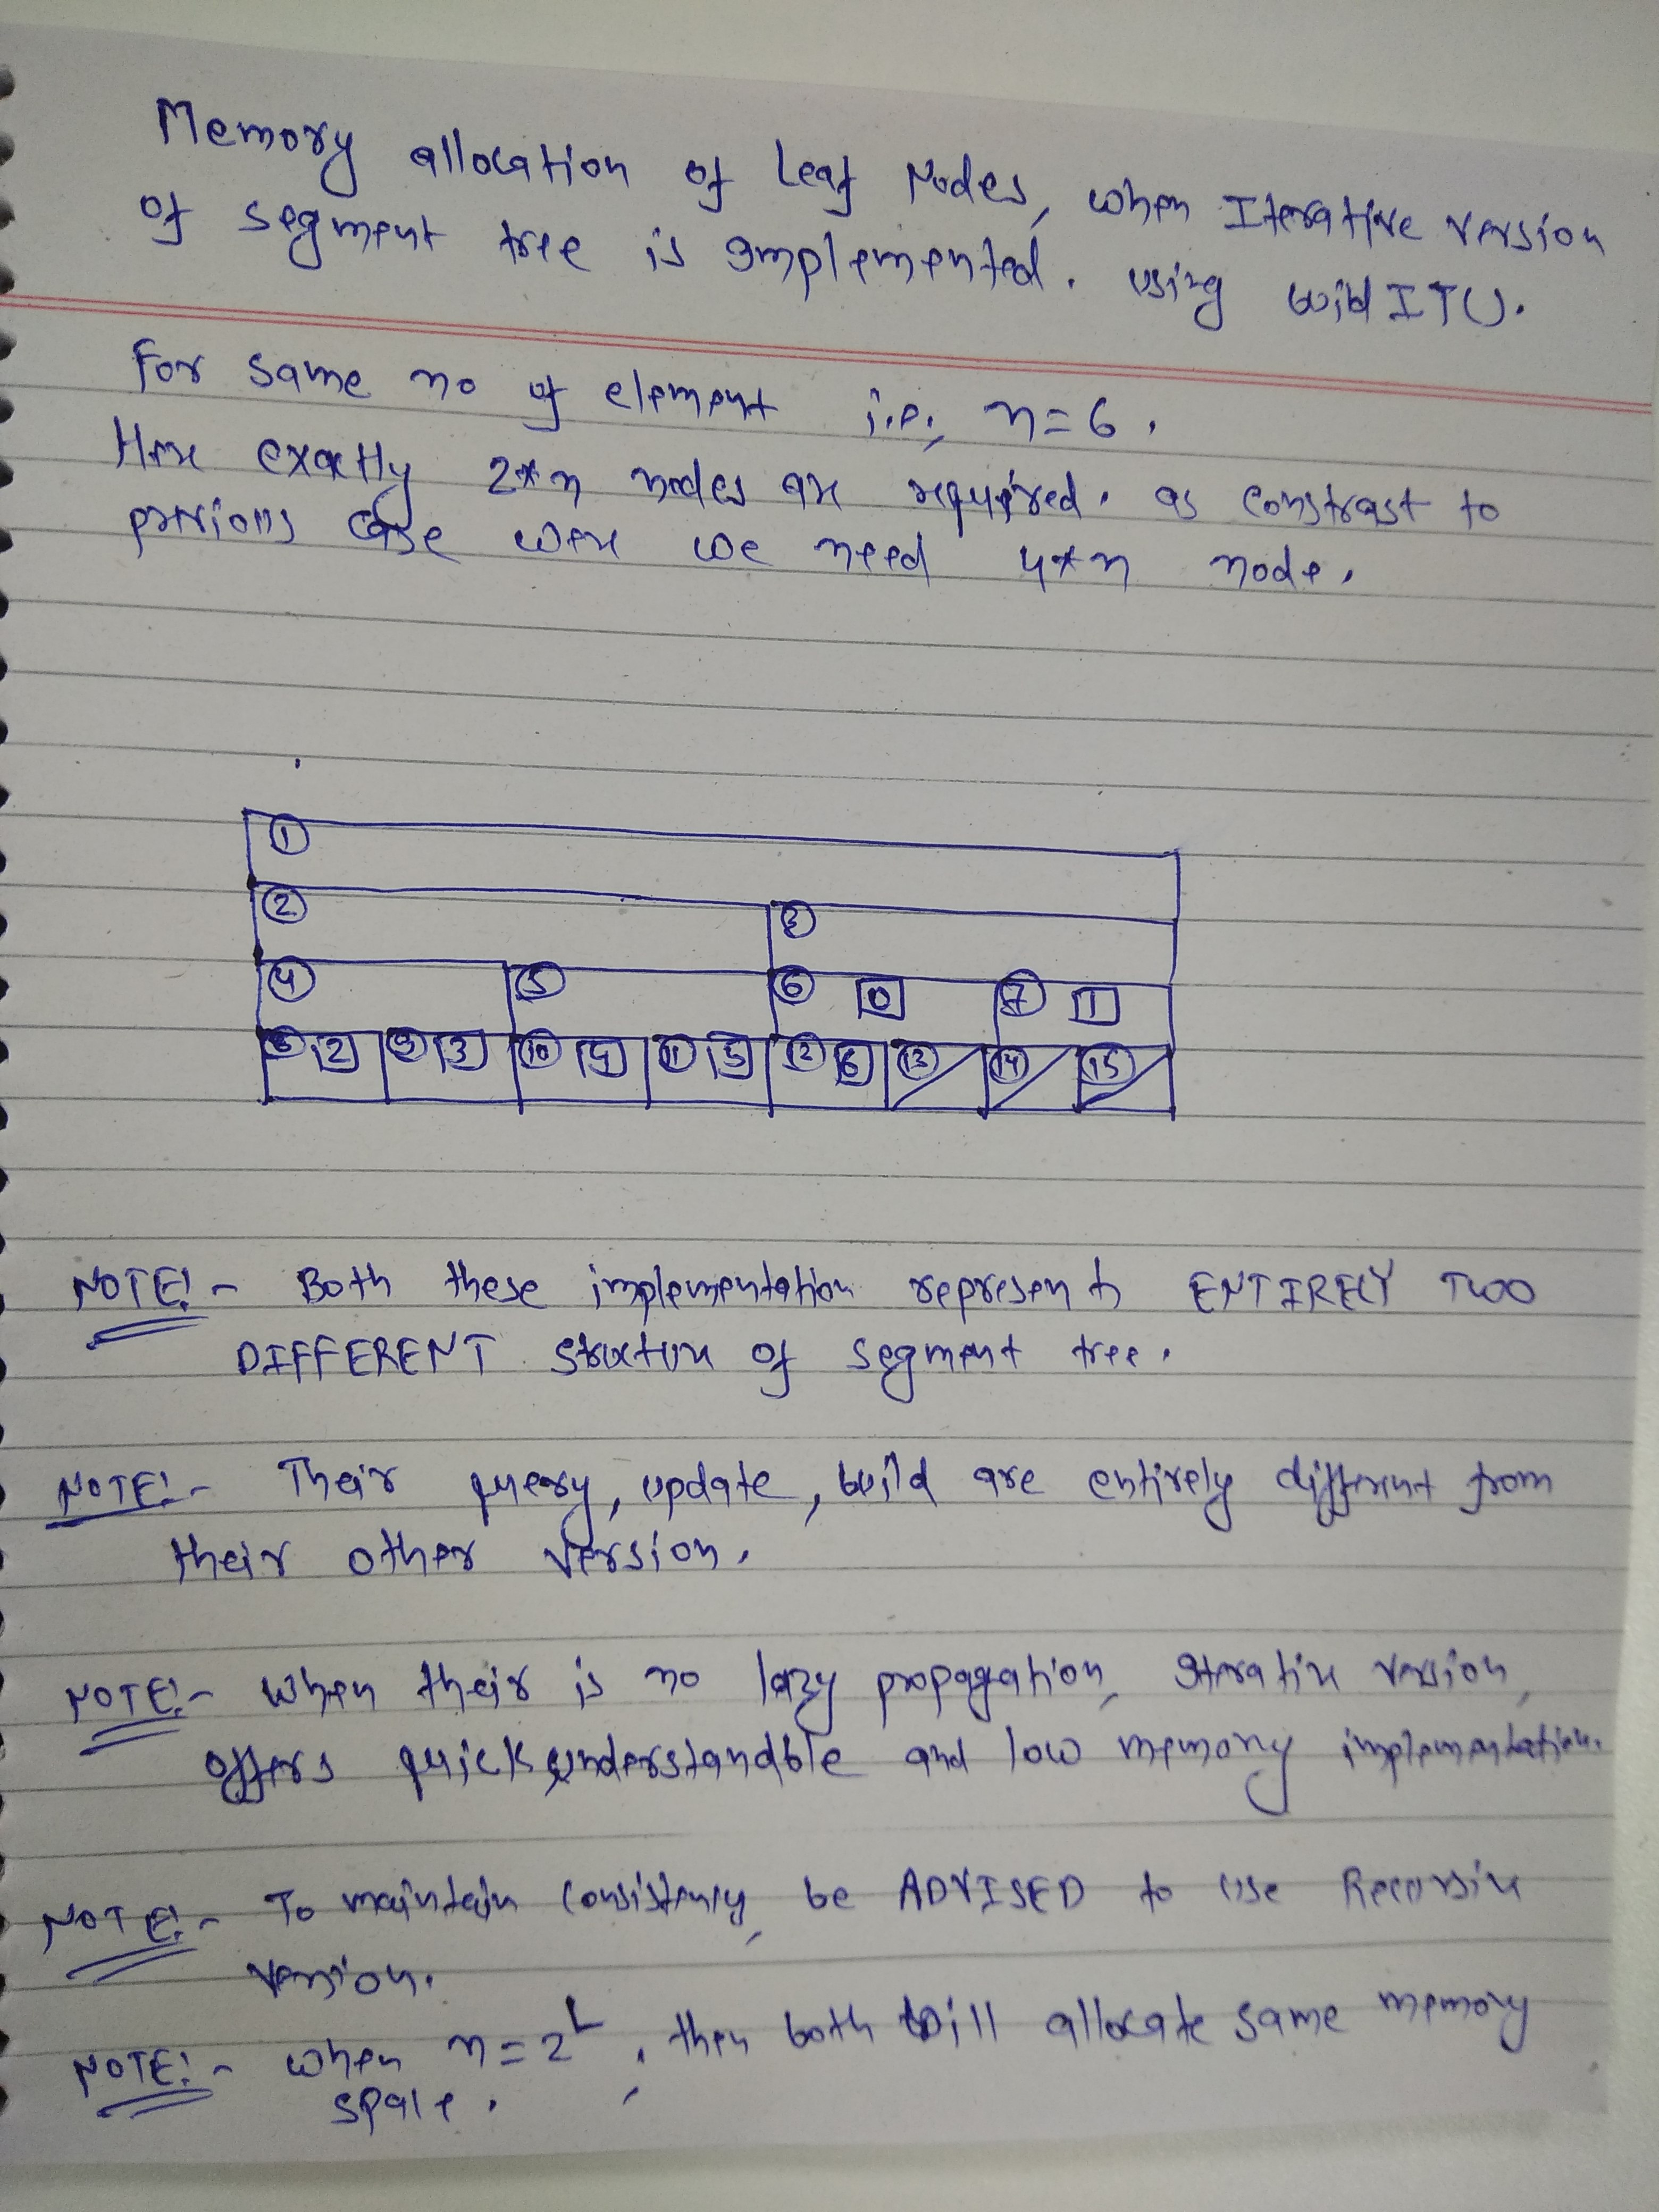 Memory allocation of Leaf Nodes, when Iterative version
of segment tree is implemented. using buildIT().
For same no of element i.e., n=6.
Here exactly 2*n nodes are required. as constrast to
previous case were we need 4*n node.
1
2 3
4 5 6 0 7 1
8 2 9 3 10 4 11 5 12 6 13 14 15
NOTE:- Both these implementation represents ENTIRELY TWO
DIFFERENT structure of segment tree.
NOTE:- Their query, update, build are entirely different from
their other version.
NOTE:- When their is no lazy propagation, Iterative version,
offers quick, understandble and low memory implementation.
NOTE:- To maintain consistency, be ADVISED to use Recursive
version.
NOTE:- When n=2^L, then both will allocate same memory
space.